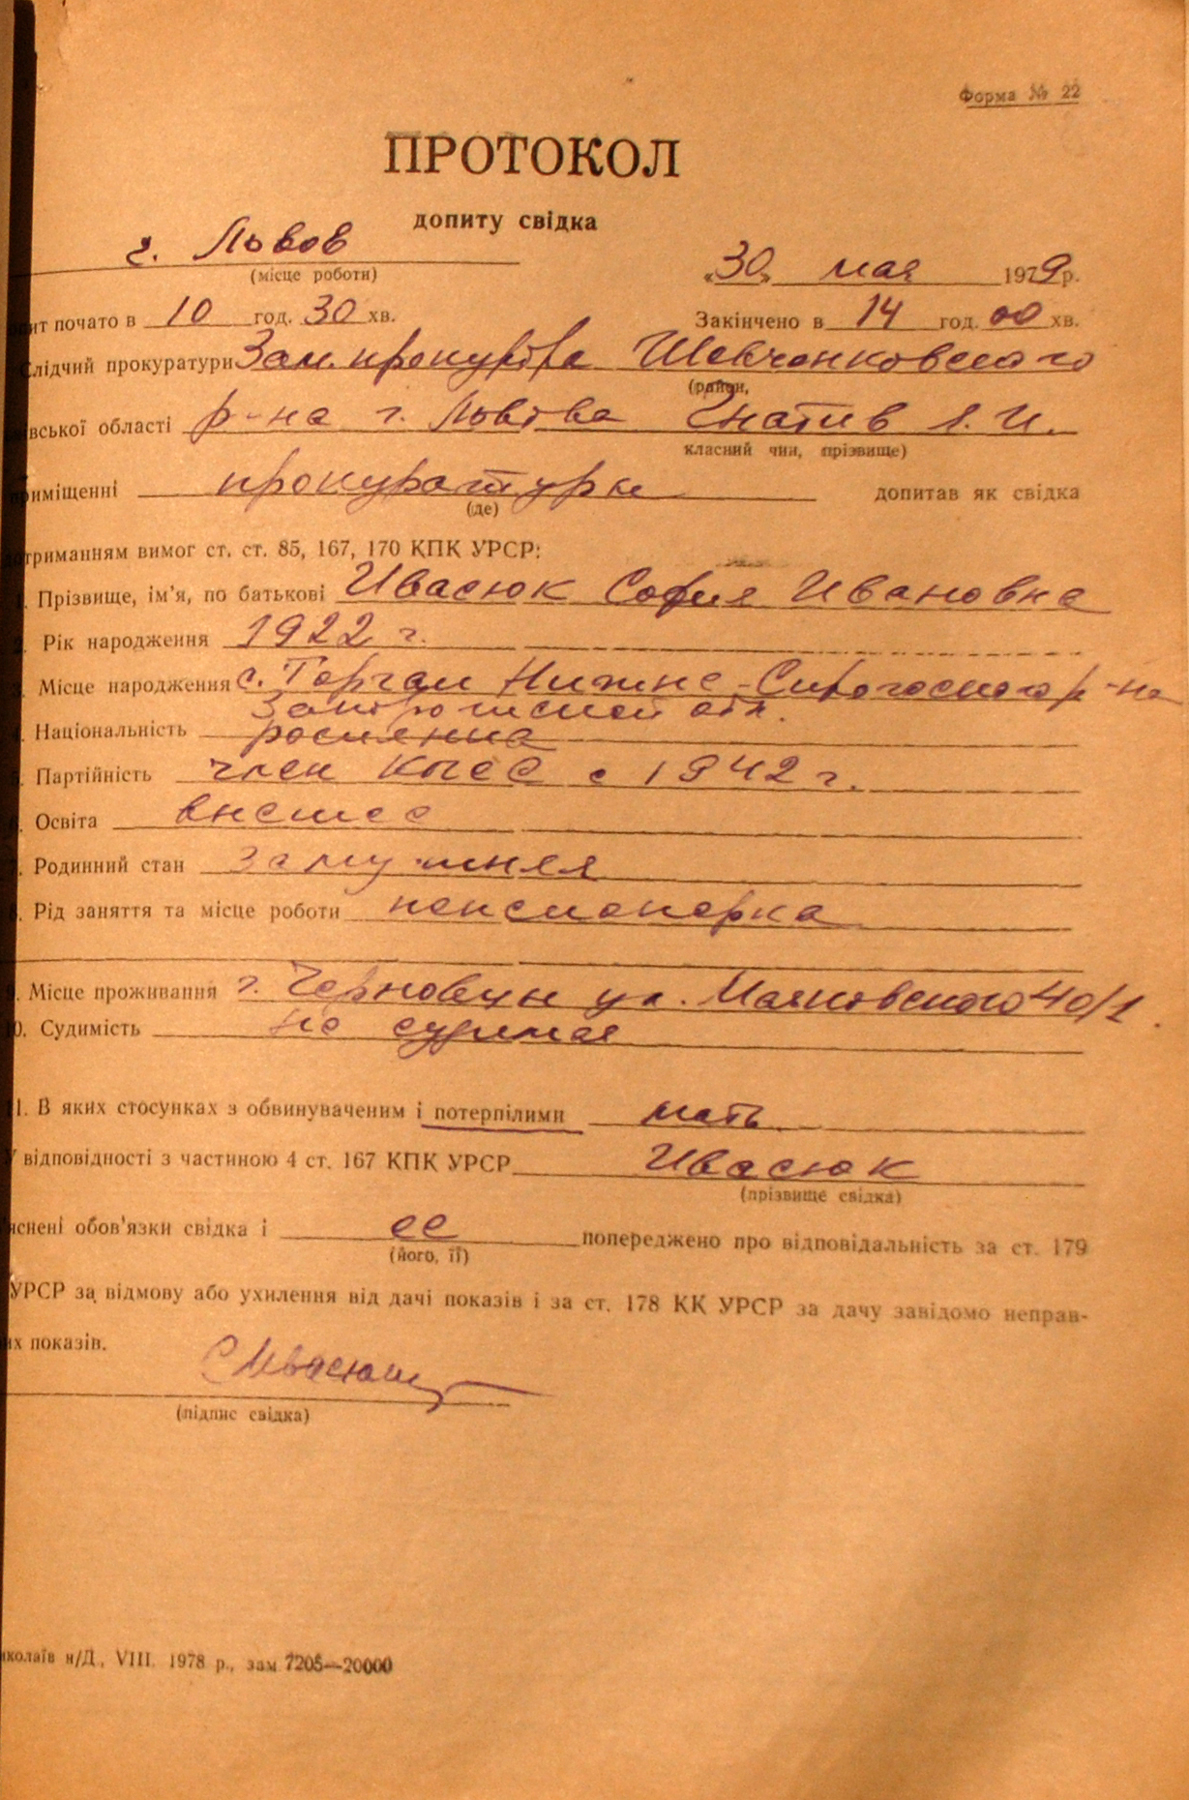 Форма № 22
ПРОТОКОЛ
допиту свідка
г. Львов
(місце роботи)
«30» мая 1979 р.
пит почато в 10 год. 30 хв. Закінчено в 14 год. 00 хв.
Слідчий прокуратури Зам. прокурора Шевченковского
(район,
івської області р-на г. Львова Гнатив
класний чин, прізвище)
риміщенні прокуратуры допитав як свідка
(де)
отриманням вимог ст. ст. 85, 167, 170 КПК УРСР:
1. Прізвище, ім'я, по батькові Ивасюк София Ивановна
2. Рік народження 1922 г.
3. Місце народження с. Нижне-Сирогосного р-на
Запорожской обл.
4. Національність россиянка
5. Партійність член КПСС с 1942 г.
6. Освіта высшее
7. Родинний стан замужняя
8. Рід заняття та місце роботи пенсионерка
9. Місце проживання г. Черновцы ул. Маяковского 40/1.
10. Судимість не судимая
11. В яких стосунках з обвинуваченим і потерпілими мать
У відповідності з частиною 4 ст. 167 КПК УРСР Ивасюк
(прізвище свідка)
яснені обов'язки свідка і ее попереджено про відповідальність за ст. 179
(його, її)
УРСР за відмову або ухилення від дачі показів і за ст. 178 КК УРСР за дачу завідомо неправ-
их показів.
СИвасюк
(підпис свідка)
иколаїв н/Д., VIII. 1978 р., зам 7205—20000